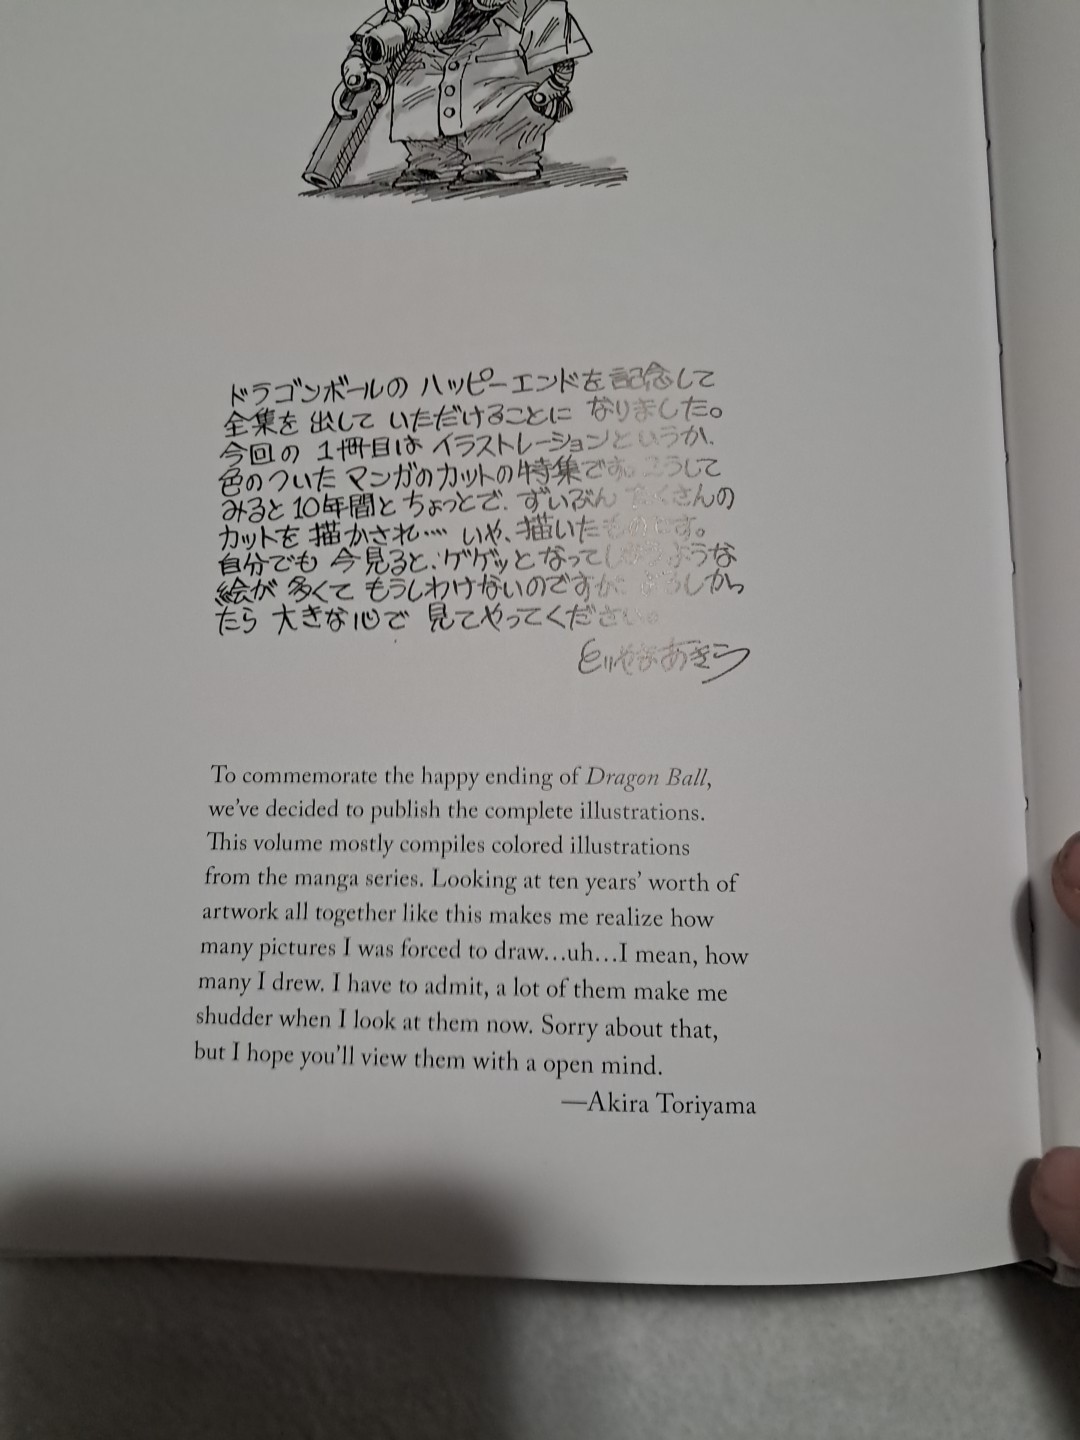 ドラゴンボールの ハッピーエンドを記念して
全集を 出して いただけることに なりました。
今回の 1冊目は イラストレーションというか、
色のついた マンガのカットの特集です。こうして
みると 10年間と ちょっとで、ずいぶん たくさんの
カットを 描かされ…… いや、描いたものです。
自分でも 今見ると、ゲゲッとなってしまうような
絵が 多くて もうしわけないのですが、よろしかっ
たら 大きな心で 見てやってください。
とりやまあきら
To commemorate the happy ending of Dragon Ball,
we've decided to publish the complete illustrations.
This volume mostly compiles colored illustrations
from the manga series. Looking at ten years' worth of
artwork all together like this makes me realize how
many pictures I was forced to draw…uh…I mean, how
many I drew. I have to admit, a lot of them make me
shudder when I look at them now. Sorry about that,
but I hope you'll view them with a open mind.
—Akira Toriyama